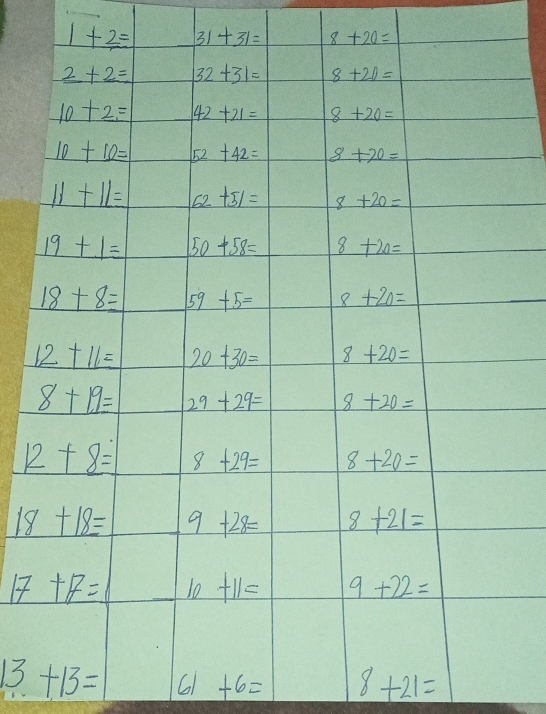 1 + 2 = 31 + 31 = 8 + 20 =
2 + 2 = 32 + 31 = 8 + 20 =
10 + 2 = 42 + 21 = 8 + 20 =
10 + 10 = 52 + 42 = 8 + 20 =
11 + 11 = 62 + 51 = 8 + 20 =
19 + 1 = 50 + 58 = 8 + 20 =
18 + 8 = 59 + 5 = 8 + 20 =
12 + 11 = 20 + 30 = 8 + 20 =
8 + 19 = 29 + 29 = 8 + 20 =
12 + 8 = 8 + 29 = 8 + 20 =
18 + 18 = 9 + 28 = 8 + 21 =
17 + 17 = 10 + 11 = 9 + 22 =
13 + 13 = 61 + 6 = 8 + 21 =